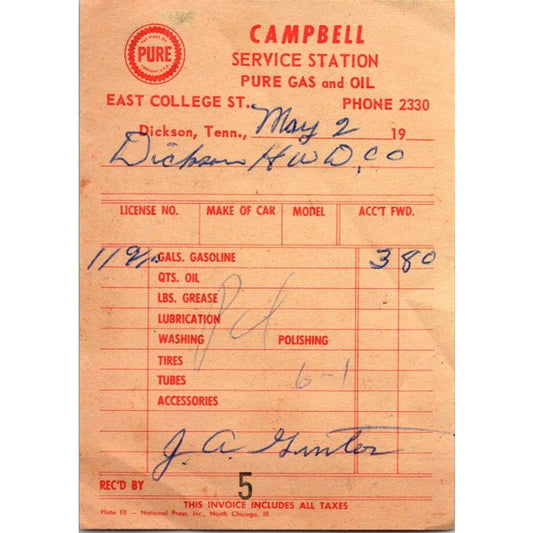 THE PURE OIL
PURE
COMPANY U.S.A.
CAMPBELL
SERVICE STATION
PURE GAS and OIL
EAST COLLEGE ST., PHONE 2330
Dickson, Tenn., May 2 19
Dickson HWD, CO
LICENSE NO. MAKE OF CAR MODEL ACC'T FWD.
11 9/10 GALS. GASOLINE 3 80
QTS. OIL
LBS. GREASE
LUBRICATION
WASHING POLISHING
Pd
TIRES
TUBES 6-1
ACCESSORIES
J. A. Ginter
REC'D BY
5
THIS INVOICE INCLUDES ALL TAXES
Plate EE – National Press, Inc., North Chicago, Ill.